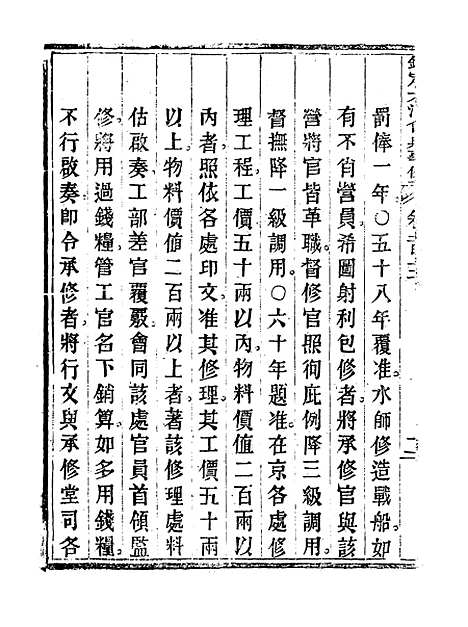 罰俸一年○五十八年覆准。水師修造戰船。如
有不肖營員希圖射利包修者。將承修官與該
營將官皆革職。督修官照徇庇例。降三級調用。
督撫降一級調用。○六十年題准。在京各處修
理工程。工價五十兩以內。物料價值二百兩以
內者。照依各處印文。准其修理。其工價五十兩
以上。物料價值二百兩以上者。著該修理處料
估啟奏。工部差官覆覈。會同該處官員首領監
修。將用過錢糧。管工官名下銷算。如多用錢糧。
不行啟奏。即令承修者。將行文與承修堂司各